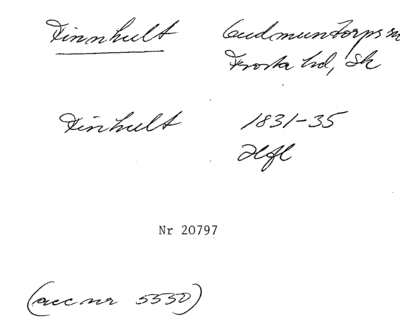 Finnhult Gudmuntorps sn
Frosta hd, Sk
Finhult 1831-35
Hfl
Nr 20797
(acc nr 5550)